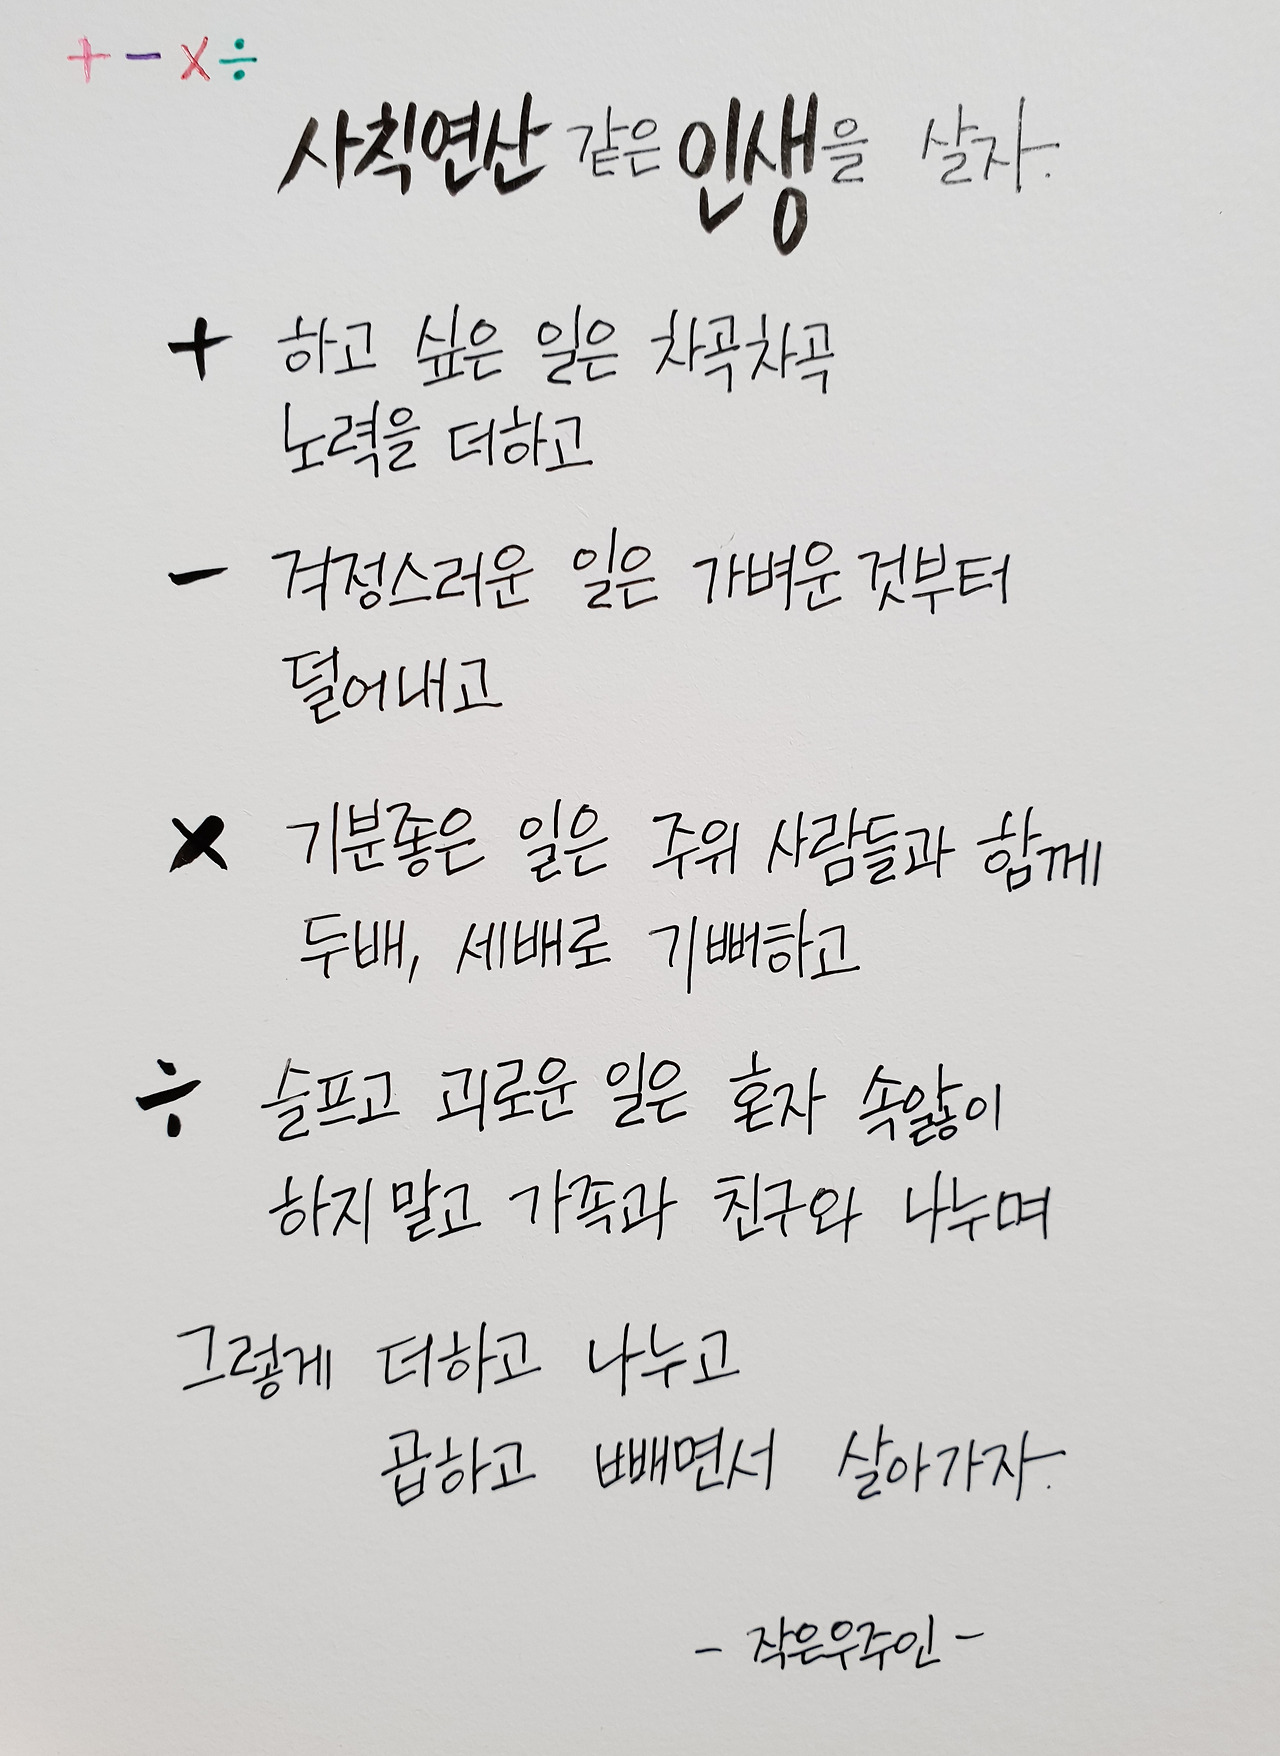 + - × ÷
사칙연산 같은 인생을 살자.
+ 하고 싶은 일은 차곡차곡
노력을 더하고
- 걱정스러운 일은 가벼운 것부터
덜어내고
× 기분좋은 일은 주위 사람들과 함께
두배, 세배로 기뻐하고
÷ 슬프고 괴로운 일은 혼자 속앓이
하지 말고 가족과 친구와 나누며
그렇게 더하고 나누고
곱하고 빼면서 살아가자.
- 작은우주인 -